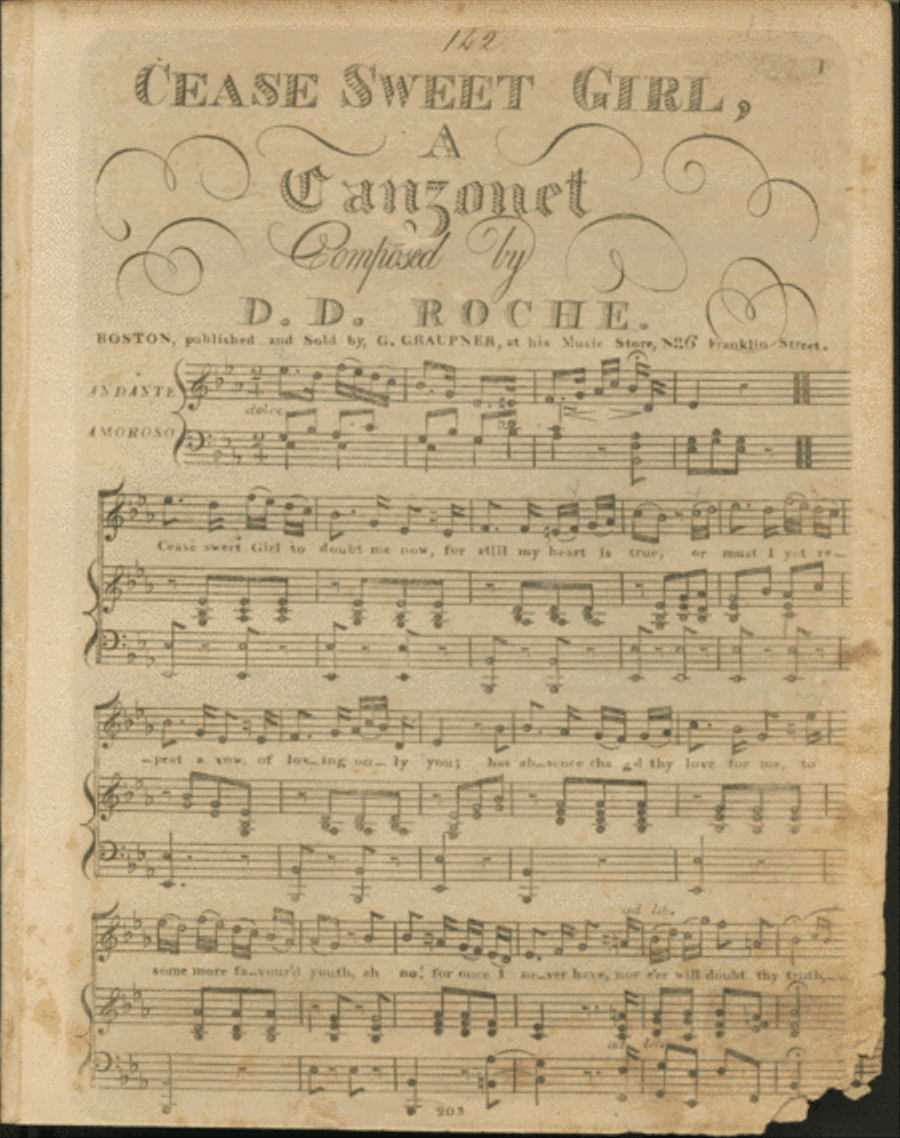 142
1
CEASE SWEET GIRL,
A
Canzonet
Composed by
D. D. ROCHE.
BOSTON, published and Sold by, G. GRAUPNER, at his Music Store, No 6 Franklin Street.
ANDANTE
dolce
AMOROSO
Cease sweet Girl to doubt me now, for still my heart is true, or must I yet re-
-peat a vow, of lov-ing on-ly you; has ab-sence cha gd thy love for me, to
ad lib.
some more fa-vour'd youth, ah no! for once I ne-ver have, nor e'er will doubt thy truth,
ad Lib.
203